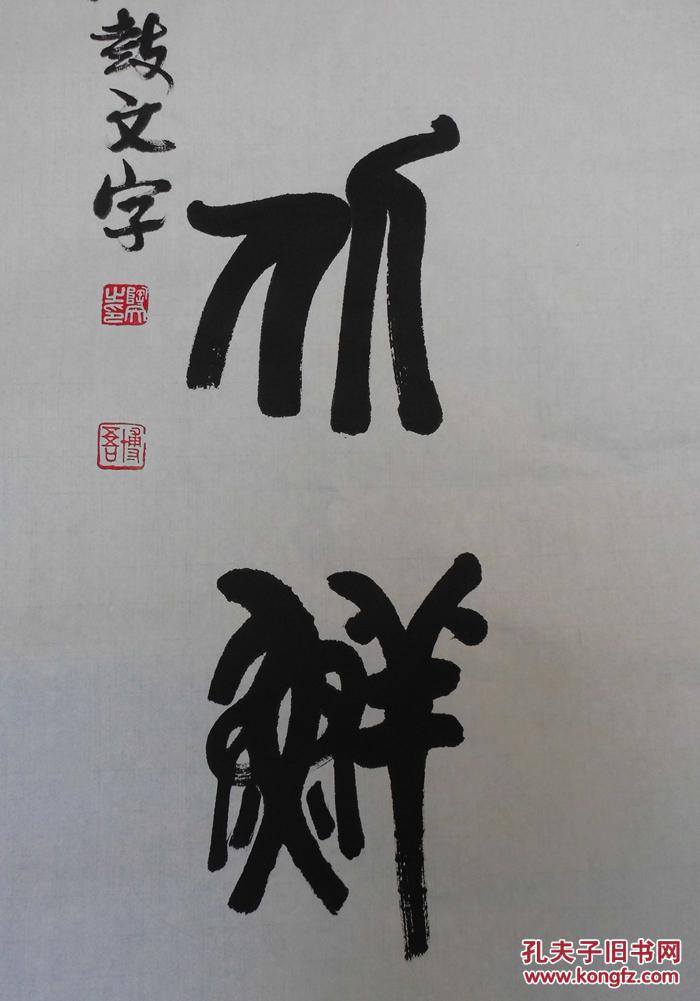 鮮
鼓文字
博吾
孔夫子旧书网
www.kongfz.com